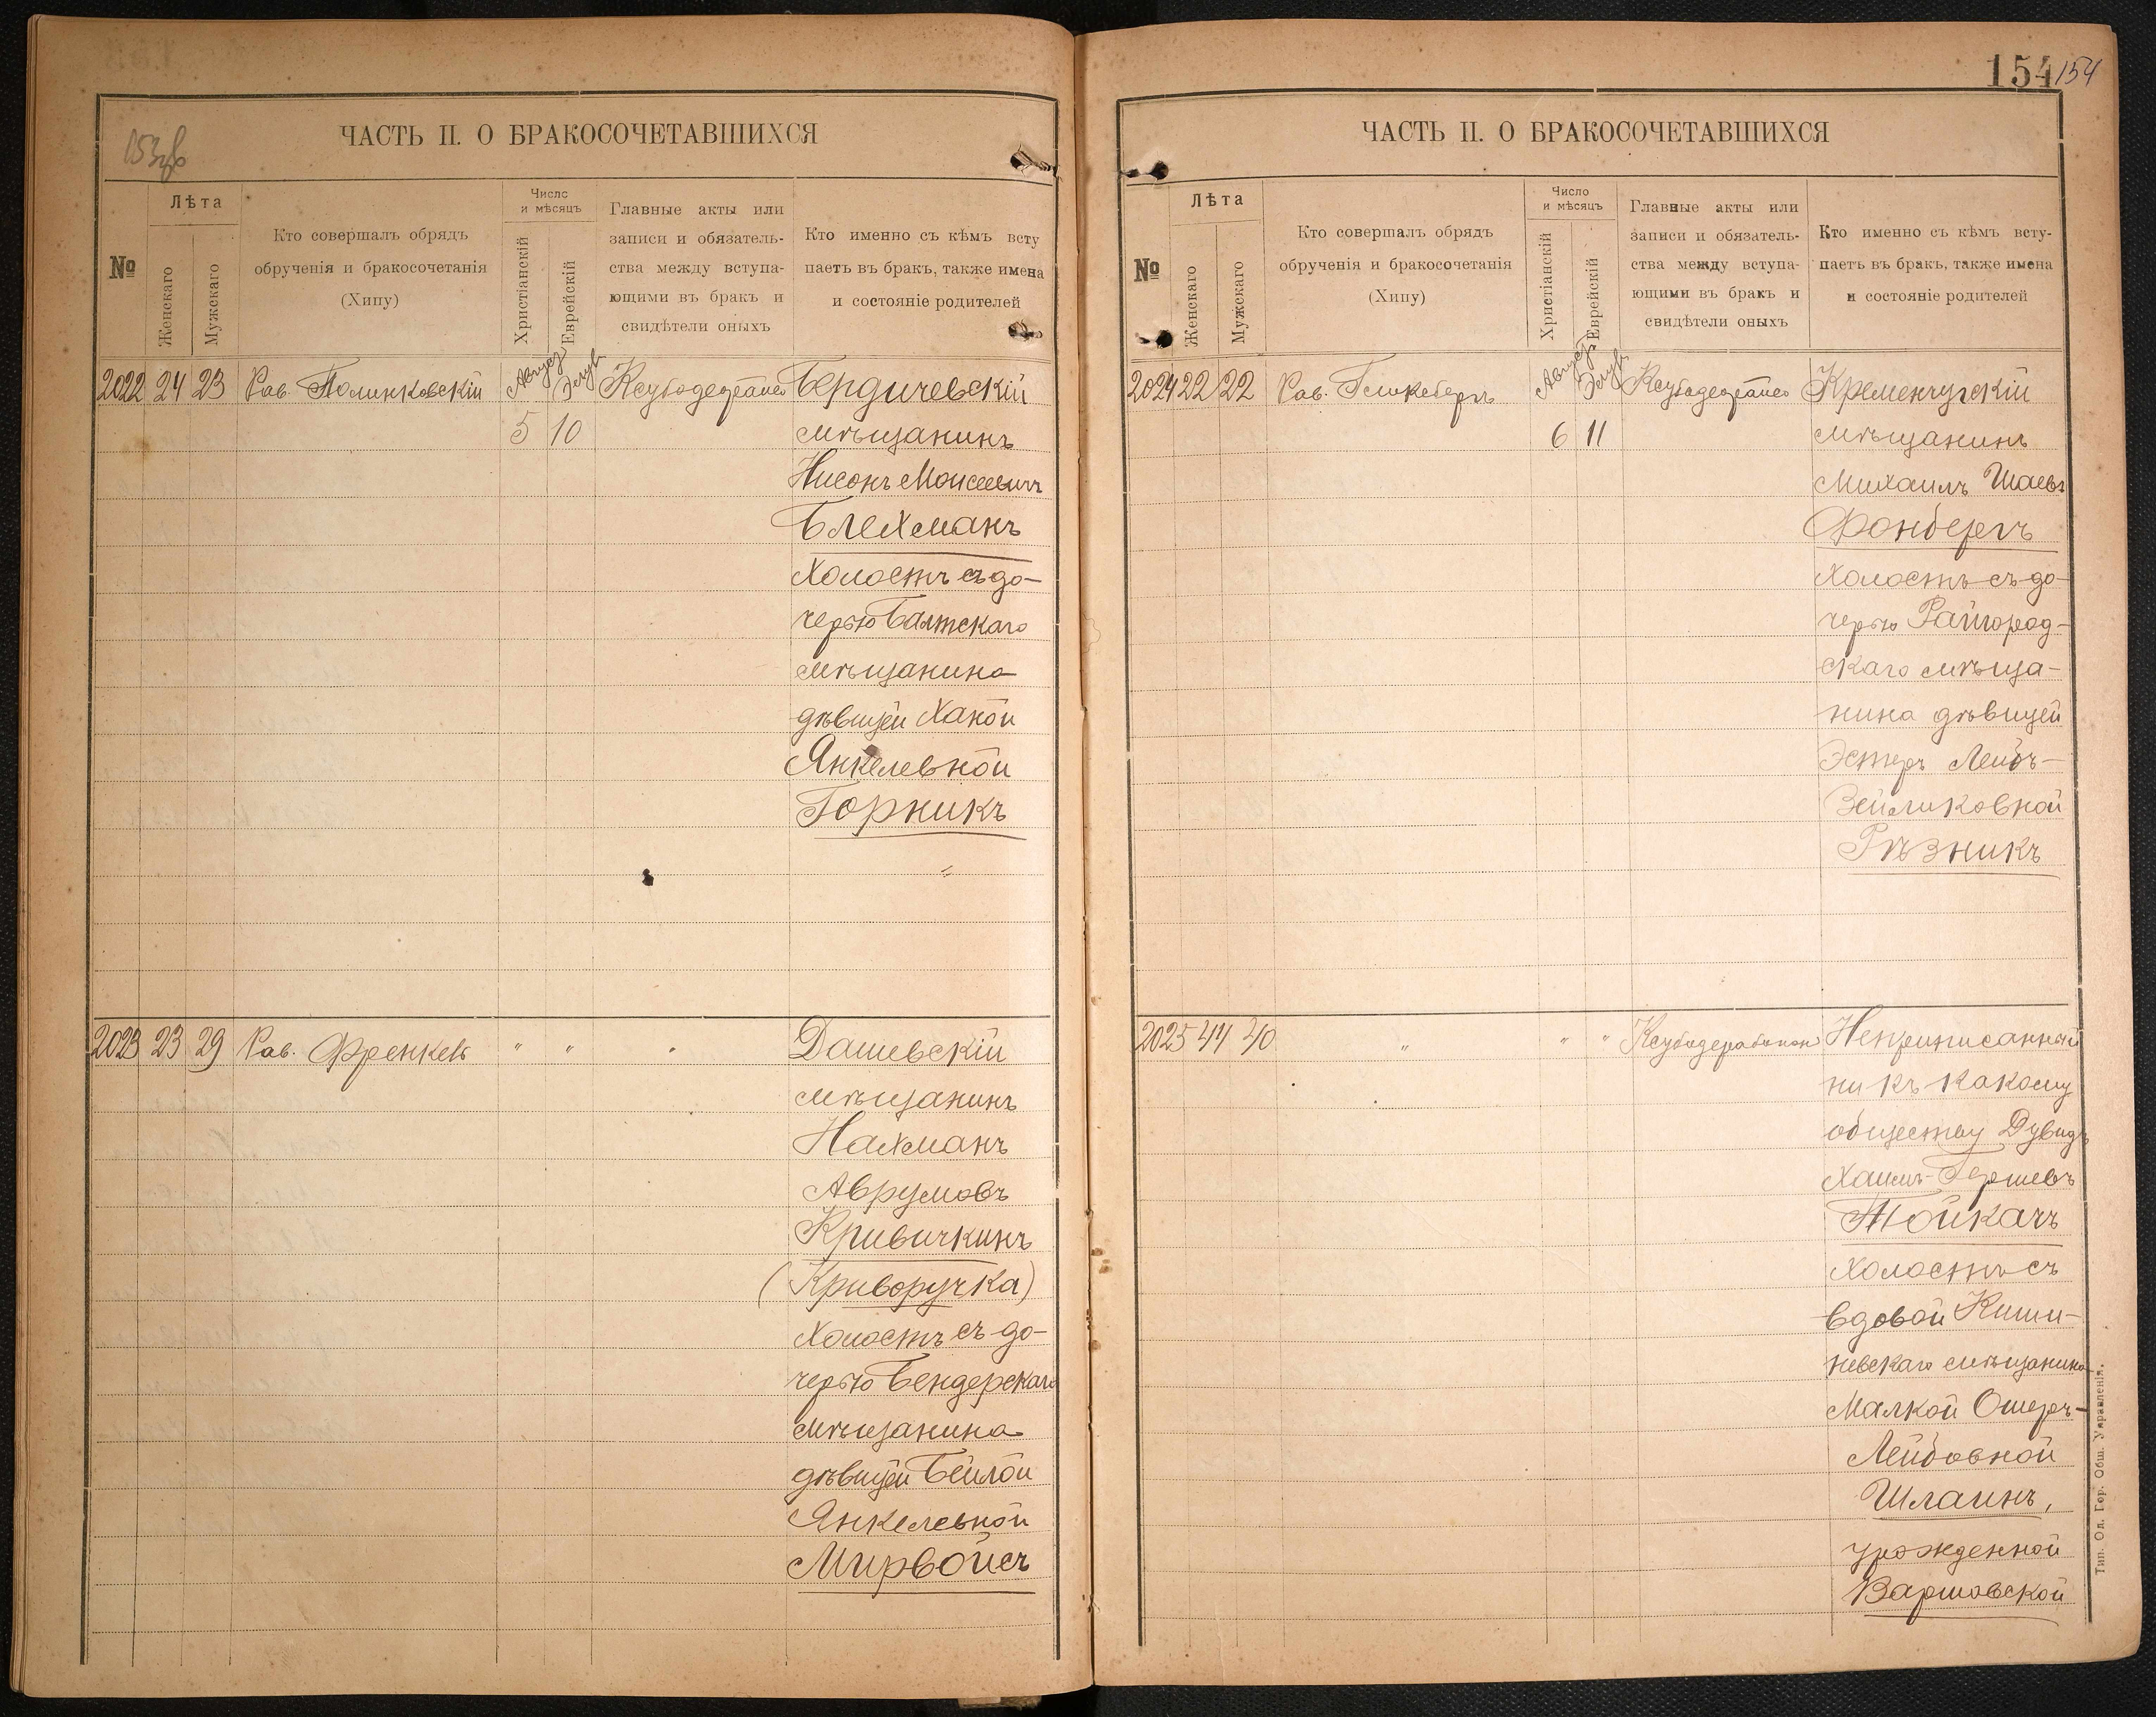 153об
ЧАСТЬ II. О БРАКОСОЧЕТАВШИХСЯ
№
Лѣта
Женскаго
Мужскаго
Кто совершалъ обрядъ
обрученія и бракосочетанія
(Хипу)
Число
и мѣсяцъ
Христіанскій
Еврейскій
Главные акты или
записи и обязатель-
ства между вступа-
ющими въ бракъ и
свидѣтели оныхъ
Кто именно съ кѣмъ всту
паетъ въ бракъ, также имена
и состояніе родителей
2022 24 23 Рав. Полинковскій Август Элулъ Бердичевскій
5 10 мѣщанинъ
Нисонъ Моисеевичъ
Блехманъ
Холостъ съ до-
черью Балтскаго
мѣщанина
дѣвицей Ханой
Янкелевной
Горникъ
2023 23 29 Рав. Френкель " " " Дашевскій
мѣщанинъ
Нахманъ
Аврумовъ
Кривичкинъ
(Криворучка)
Холостъ съ до-
черью Бендерскаго
мѣщанина
дѣвицей Бейлой
Янкелевной
Мирвойсъ
154 154
ЧАСТЬ II. О БРАКОСОЧЕТАВШИХСЯ
№
Лѣта
Женскаго
Мужскаго
Кто совершалъ обрядъ
обрученія и бракосочетанія
(Хипу)
Число
и мѣсяцъ
Христіанскій
Еврейскій
Главные акты или
записи и обязатель-
ства между вступа-
ющими въ бракъ и
свидѣтели оныхъ
Кто именно съ кѣмъ всту-
паетъ въ бракъ, также имена
и состояніе родителей
2024 22 22 Рав. Август Элулъ Кременчугскій
6 11 мѣщанинъ
Михаилъ Шаевъ
Фонбергъ
Холостъ съ до-
черью Райгород-
скаго мѣща-
нина дѣвицей
Эстеръ Лейбъ-
Зейликовной
Рѣзникъ
2025 44 40 " " " Неприписанный
ни къ какому
обществу Дувидъ
Хаимъ-Гершевъ
Тойкачъ
Холостъ съ
вдовой Киши-
невскаго мѣщанина
Малкой Ошеръ-
Лейбовной
Шлаинъ,
урожденной
Варшовской
Тип. Од. Гор. Общ. Управленія.